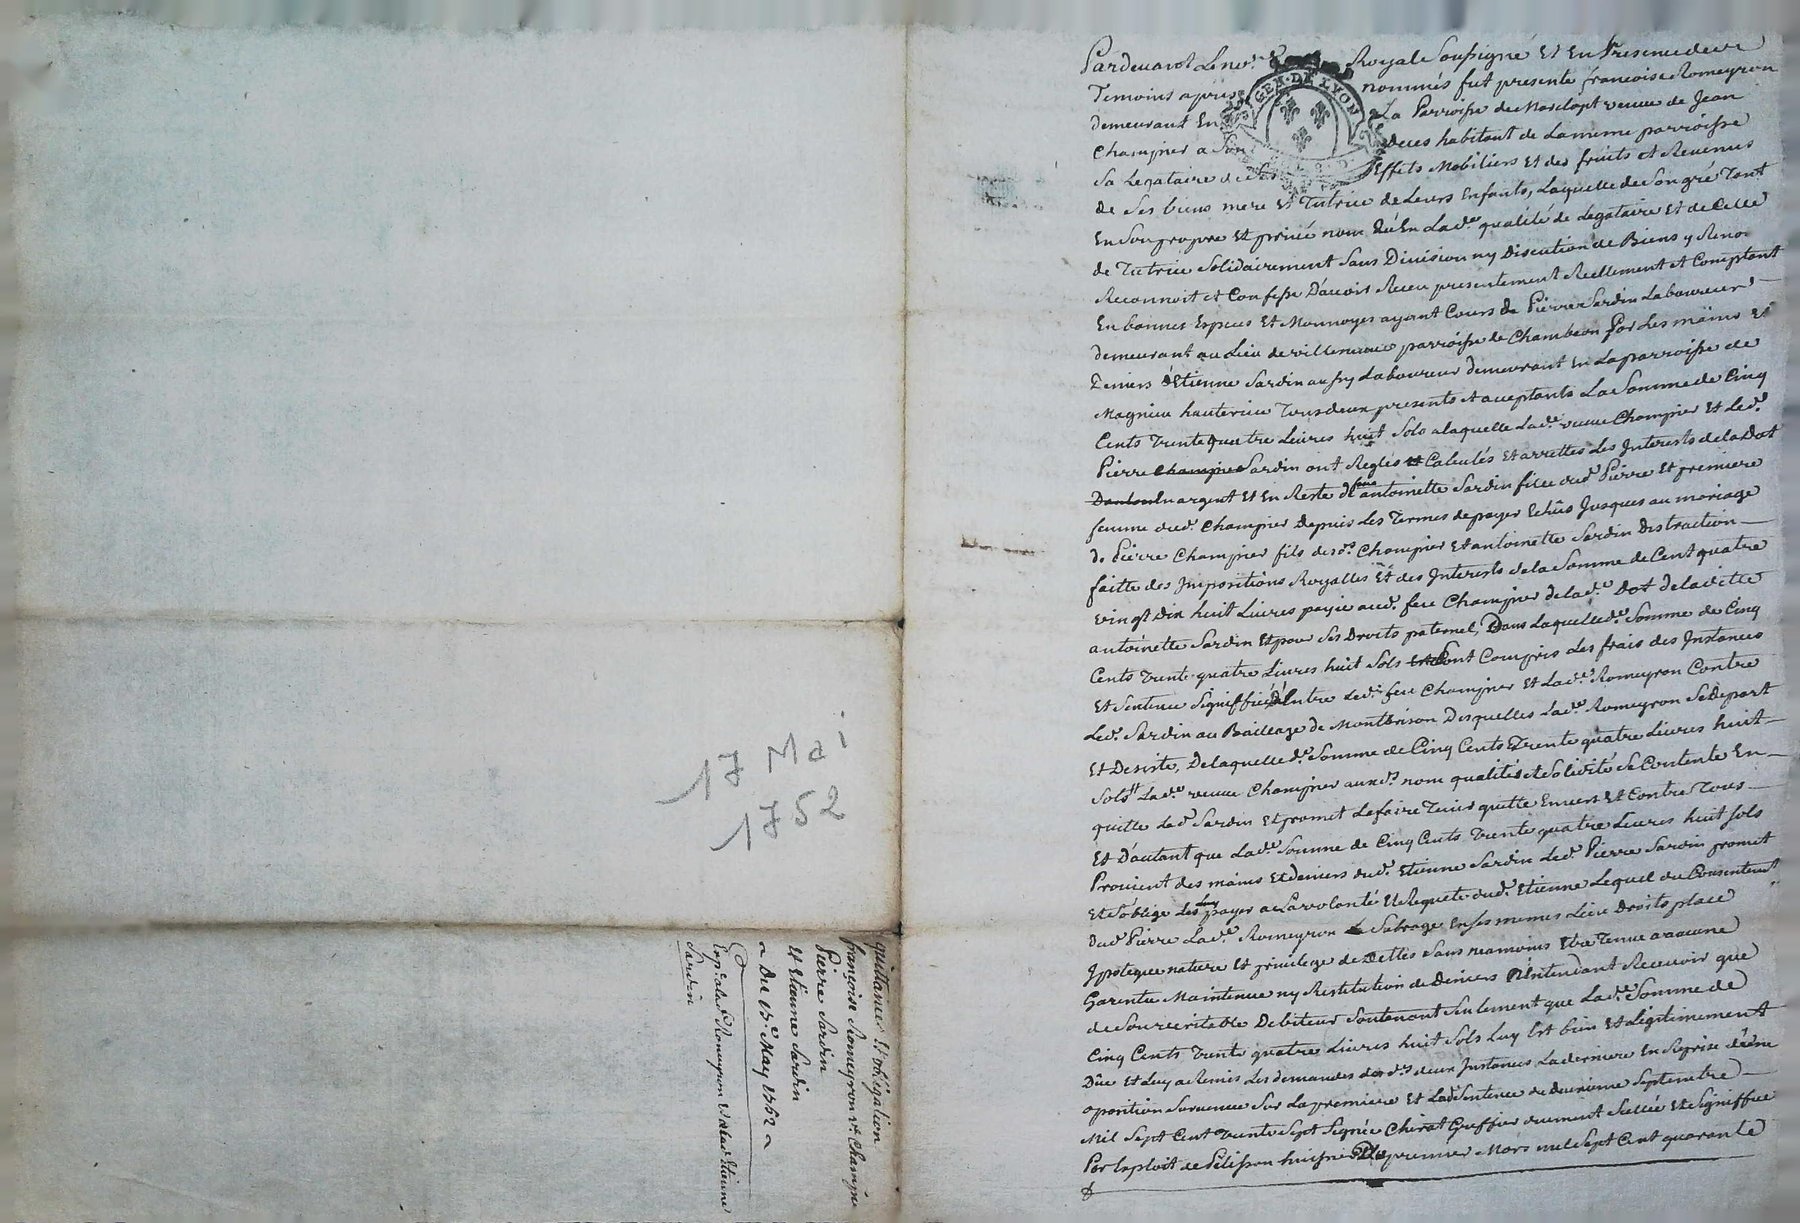 17 Mai
1752
quittance Et obligation
francoise Romeyron vve Champier
Pierre Sardin
Et Etienne Sardin
Du 17e May 1752
Exp: a lad. Romeyron Et alad Etienne
Sardin
GEN. DE LYON
Pardevant Le nore Royal Soussigné Et En Presence de
Temoins apres nommés fut presente francoise Romeyron
demeurant En La Parroisse de veuve de Jean
Champier a Son deces habitant de La meme parroisse
Sa Legataire de Ses Effets Mobiliers Et des fruits Et Revenus
de Ses biens mere Et Tutrice de Leurs Enfants, Laquelle de Son gré Tant
En Son propre Et privé nom qu'En Lade qualité de Legataire Et de Celle
de Tutrice Solidairement Sans Division ny Discution de Biens y Reno.
Reconnoit et Confesse D'avoir Receu presentement Reellement et Comptant
En bonnes Especes Et Monnoyes ayant Cours de Pierre Sardin Laboureur
demeurant au Lieu de villeneuve parroisse de Chambeon Par Les mains Et
Deniers d'Etienne Sardin aussy Laboureur demeurant En La parroisse de
Magnieu hauterive Tous deux presents et acceptants La Somme de Cinq
Cents Trente quatre Livres huit Sols a laquelle Lade veuve Champier Et Led.
Pierre Champier Sardin ont Reglés et Calculés Et arrettés Les Interests de la Dot
En argent Et En Reste de feue antoinette Sardin fille dud. Pierre Et premiere
femme dud. Champier Depuis Les Termes de payer Echûs Jusques au mariage
de Pierre Champier fils desds Champier Et antoinette Sardin Distraction
faitte des Impositions Royalles Et des Interests de la Somme de Cent quatre
vingt Dix huit Livres payée aud. feu Champier de lade Dot de la ditte
antoinette Sardin Et pour Ses Droits paternel, Dans Laquelle de Somme de Cinq
Cents Trente quatre Livres huit Sols Sont Compris Les frais des Instances
Et Sentence Signiffiée Entre Led. feu Champier Et Lade Romeyron Contre
Led. Sardin au Bailliage de Montbrison Desquelles Lade Romeyron Se Depart
Et Desiste, De laquelle de Somme de Cinq Cents Trente quatre Livres huit
Sols Lade veuve Champier auxds nom qualités et Solidité Se Contente En
quitte Led Sardin Et promet Le faire Tenir quitte Envers Et Contre Tous
Et D'autant que Lade Somme de Cinq Cents Trente quatre Livres huit Sols
Provient des mains Et deniers dud. Etienne Sardin Led. Pierre Sardin promet
Et S'oblige de Luy payer a La volonté Et Requete dud. Etienne Lequel du Consentement
Dud Pierre Lade Romeyron Subroge En Ses memes Lieu Droits place
Ypoteque nature Et privilege de Dettes Sans neamoins Etre Tenue a aucune
Garentie Maintenue ny Restitution de Deniers N'Entendant Recevoir que
de Son veritable Debiteur Soutenant Seulement que Lade Somme de
Cinq Cents Trente quatre Livres huit Sols Luy Est bien Et Legitimement
Dûe Et Luy a Remis Les demandes desds deux Instances La derniere En Reprise d'une
oposition Survenue Sur La premiere Et Lade Sentence du deuxieme Septembre
Mil Sept Cent Trente Sept Signée Chirat Greffier duement Scellée Et Signiffiée
Par Exploit de Pelisson huissier Du premier Mars mil Sept Cent quarante